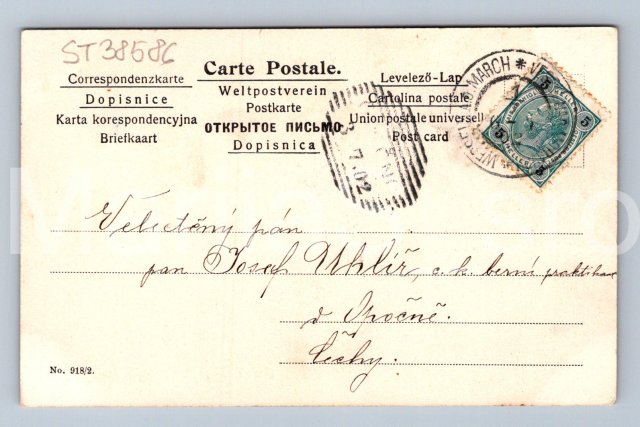 ST38586
Carte Postale.
Correspondenzkarte
Weltpostverein
Levelező-Lap
Dopisnice
Postkarte
Cartolina postale
Karta korespondencyjna
ОТКРЫТОЕ ПИСЬМО
Union postale universelle
Briefkaart
Dopisnica
Post card
MARCH
5
5
5
5
7.02
Velectěný pán
pan Josef Uhlíř, c. k. berní praktikant
v Opočně.
Čechy.
No. 918/2.